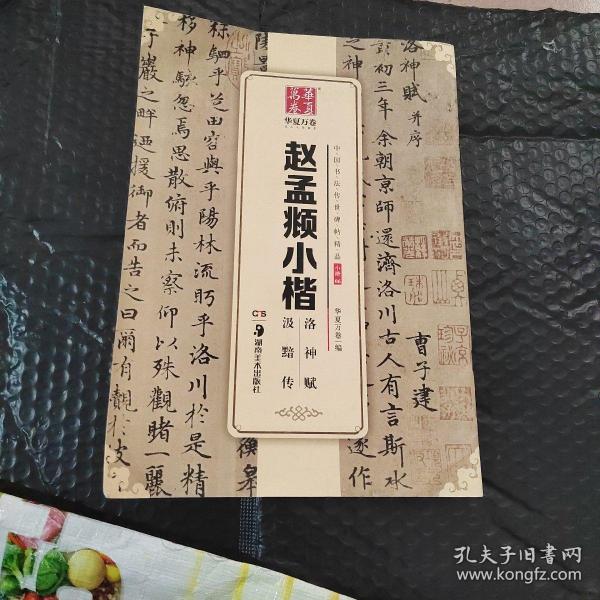 洛神賦 并序
初三年余朝京師還濟洛川古人有言斯水
曹子建
遂作
華夏
萬卷
华夏万卷
中国书法传世碑帖精品
小楷
赵孟頫小楷
洛神赋
汲黯传
华夏万卷 编
湖南美术出版社
衡皋
秣駟乎芝田容與乎陽林流眄乎洛川於是精
移神駭忽焉思散俯則未察仰以殊觀睹一麗
于巖之畔迺援御者而告之曰爾有覿於
孔夫子旧书网
www.kongfz.com